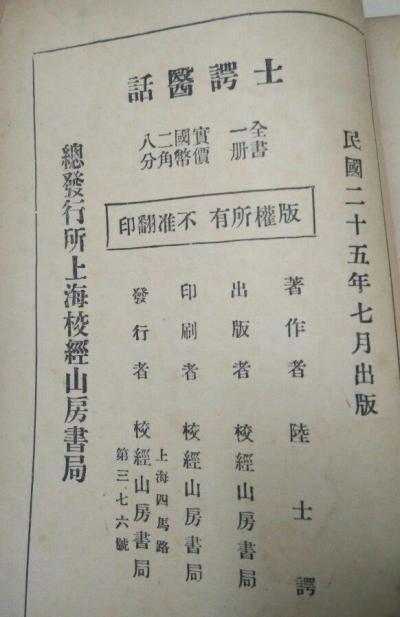 民國二十五年七月出版
士諤醫話
全書一册
實價國幣二角八分
版權所有 不准翻印
著作者 陸士諤
出版者 校經山房書局
印刷者 校經山房書局
發行者 校經山房書局
上海四馬路
第三七六號
總發行所上海校經山房書局